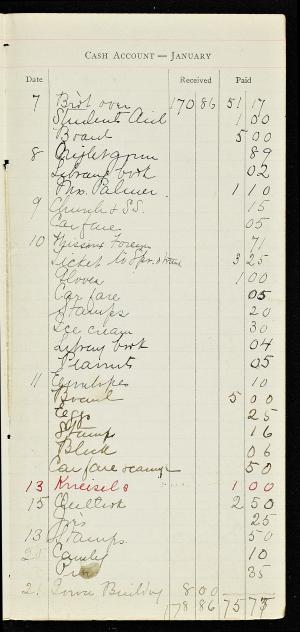 CASH ACCOUNT — JANUARY
Date Received Paid
7 Bro't over 170 86 51 17
Students Aid 1 00
Board 5 00
8 Nightgown 89
Library book 02
Mrs. Palmer 1 10
9 Church & S.S. 15
Car fare 05
10 Missions Foreign 71
Ticket to Spr. & 3 25
Gloves 1 00
Car fare 05
Stamps 20
Ice cream 30
Library book 04
Peanuts 05
11 Envelopes 10
Board 5 00
Eggs 25
Stamps 16
Blick 06
Car fare 50
13 Kreisels 1 00
15 2 50
25
13 Stamps 50
20 Candy 10
35
21 Building 8 00
178 86 75 77